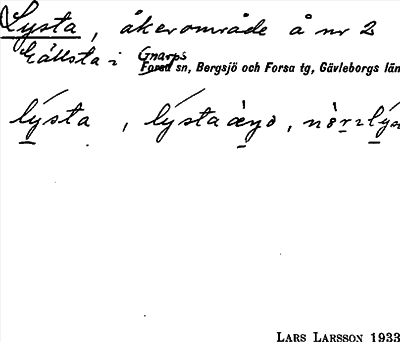 Lysta, åkerområde å nr 2
Källsta i Gnarps
Forsa sn, Bergsjö och Forsa tg, Gävleborgs län
lýsta, lýsta
LARS LARSSON 1933